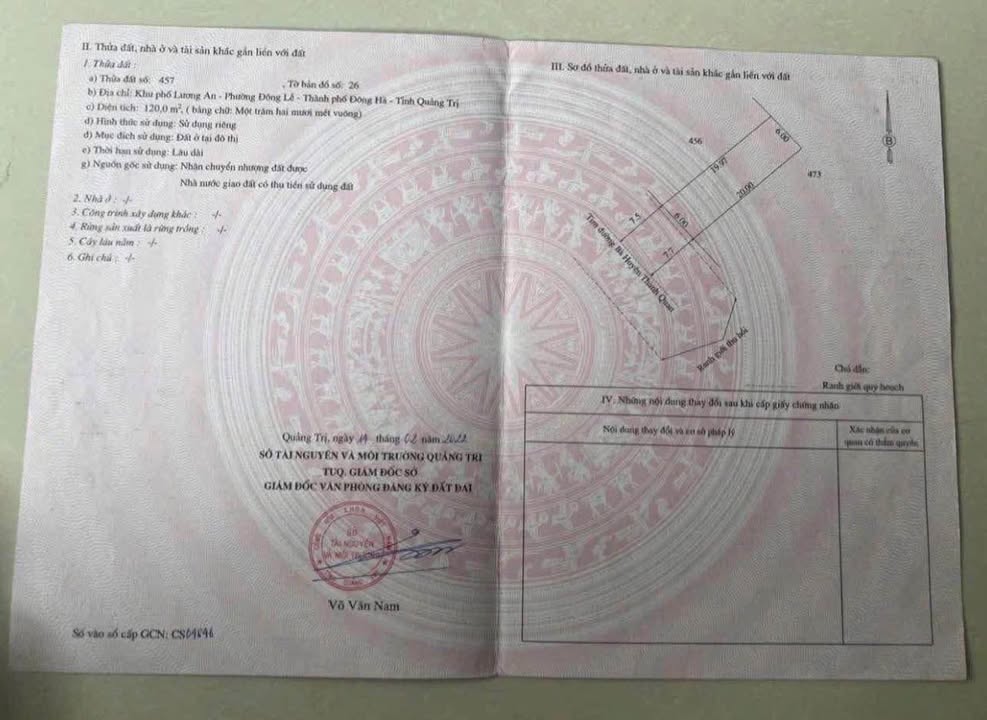 II. Thửa đất, nhà ở và tài sản khác gắn liền với đất
1. Thửa đất :
a) Thửa đất số: 457 , Tờ bản đồ số: 26
b) Địa chỉ: Khu phố Lương An - Phường Đông Lễ - Thành phố Đông Hà - Tỉnh Quảng Trị
c) Diện tích: 120,0 m², ( bằng chữ: Một trăm hai mươi mét vuông)
d) Hình thức sử dụng: Sử dụng riêng
đ) Mục đích sử dụng: Đất ở tại đô thị
e) Thời hạn sử dụng: Lâu dài
g) Nguồn gốc sử dụng: Nhận chuyển nhượng đất được
Nhà nước giao đất có thu tiền sử dụng đất
2. Nhà ở : -/-
3. Công trình xây dựng khác : -/-
4. Rừng sản xuất là rừng trồng : -/-
5. Cây lâu năm : -/-
6. Ghi chú : -/-
Quảng Trị, ngày tháng 02 năm 2022
SỞ TÀI NGUYÊN VÀ MÔI TRƯỜNG QUẢNG TRỊ
TUQ. GIÁM ĐỐC SỞ
GIÁM ĐỐC VĂN PHÒNG ĐĂNG KÝ ĐẤT ĐAI
SỞ
TÀI NGUYÊN
VÀ MÔI TRƯỜNG
Võ Văn Nam
Số vào sổ cấp GCN: CS
III. Sơ đồ thửa đất, nhà ở và tài sản khác gắn liền với đất
B
456
6.00
19.97
473
20.00
7.5
6.00
Tim đường Bà Huyện Thanh Quan
Ranh giới thu hồi
Chú dẫn:
Ranh giới quy hoạch
IV. Những nội dung thay đổi sau khi cấp giấy chứng nhận
Nội dung thay đổi và cơ sở pháp lý
Xác nhận của cơ
quan có thẩm quyền